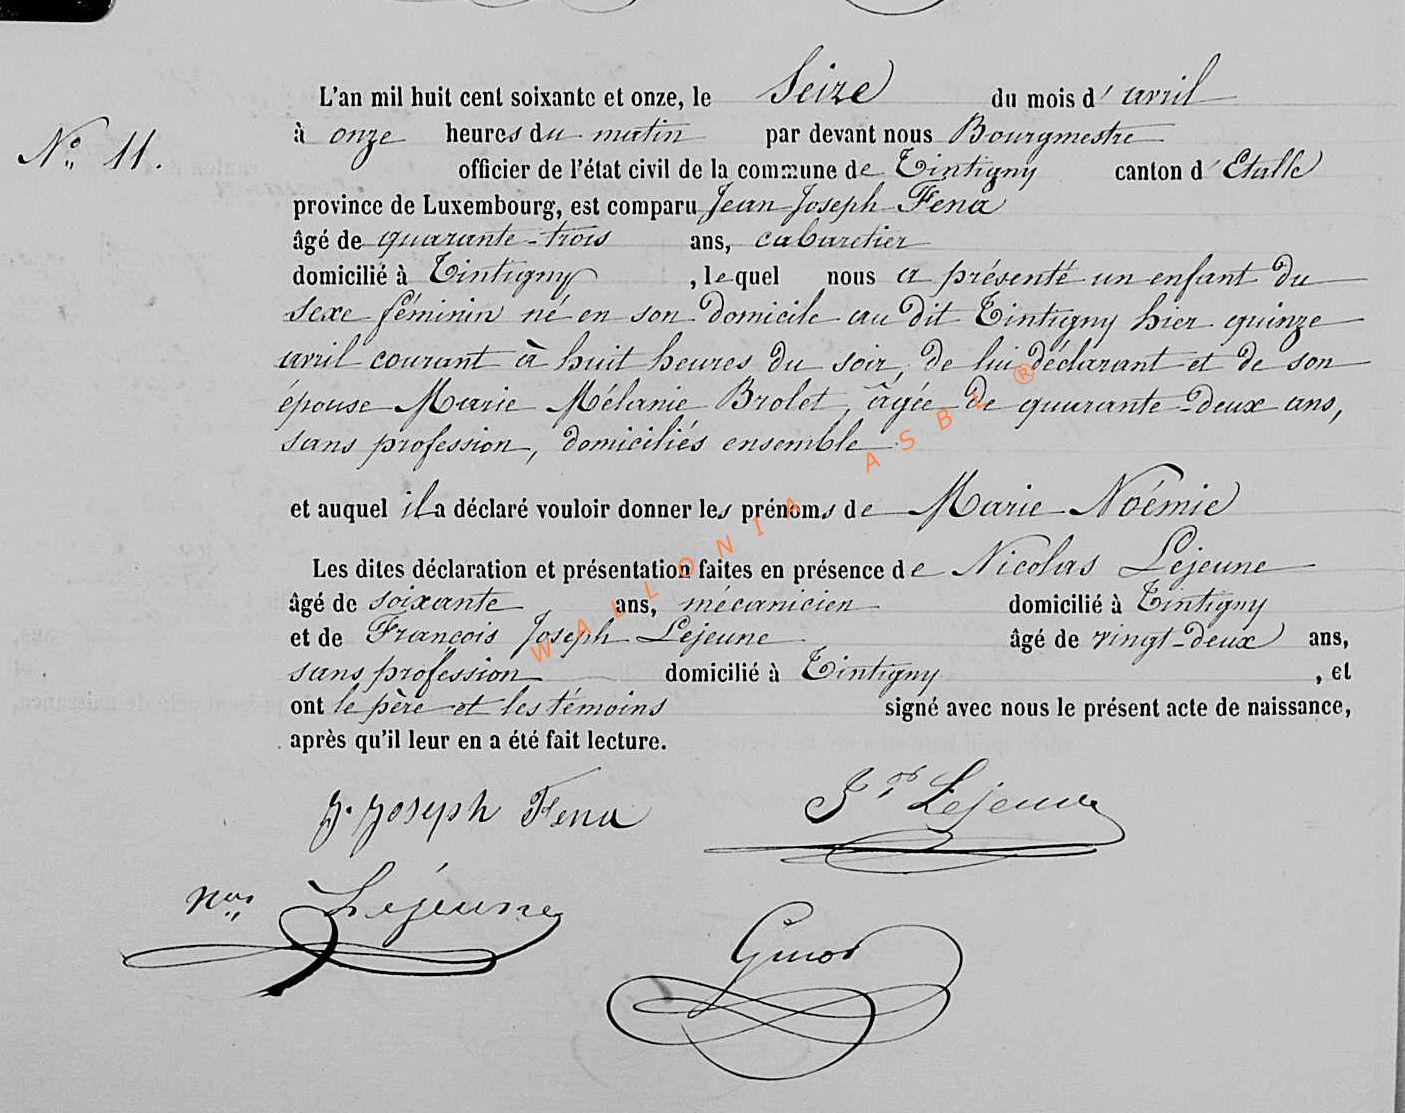 L'an mil huit cent soixante et onze, le Seize du mois d'avril
N° 11.
à onze heures du matin par devant nous Bourgmestre
officier de l'état civil de la commune de Tintigny canton d'Etalle
province de Luxembourg, est comparu Jean Joseph Fena
âgé de quarante-trois ans, cabaretier
domicilié à Tintigny, lequel nous a présenté un enfant du
sexe féminin né en son domicile au dit Tintigny hier quinze
avril courant à huit heures du soir, de lui déclarant et de son
épouse Marie Mélanie Brolet, âgée de quarante-deux ans,
sans profession, domiciliés ensemble.
et auquel il a déclaré vouloir donner les prénoms de Marie Noémie
Les dites déclaration et présentation faites en présence de Nicolas Lejeune
âgé de soixante ans, mécanicien domicilié à Tintigny
et de François Joseph Lejeune âgé de vingt-deux ans,
sans profession domicilié à Tintigny, et
ont le père et les témoins signé avec nous le présent acte de naissance,
après qu'il leur en a été fait lecture.
J. Joseph Fena
Lejeune
Nas Lejeune
WALLONIA ASBL ®